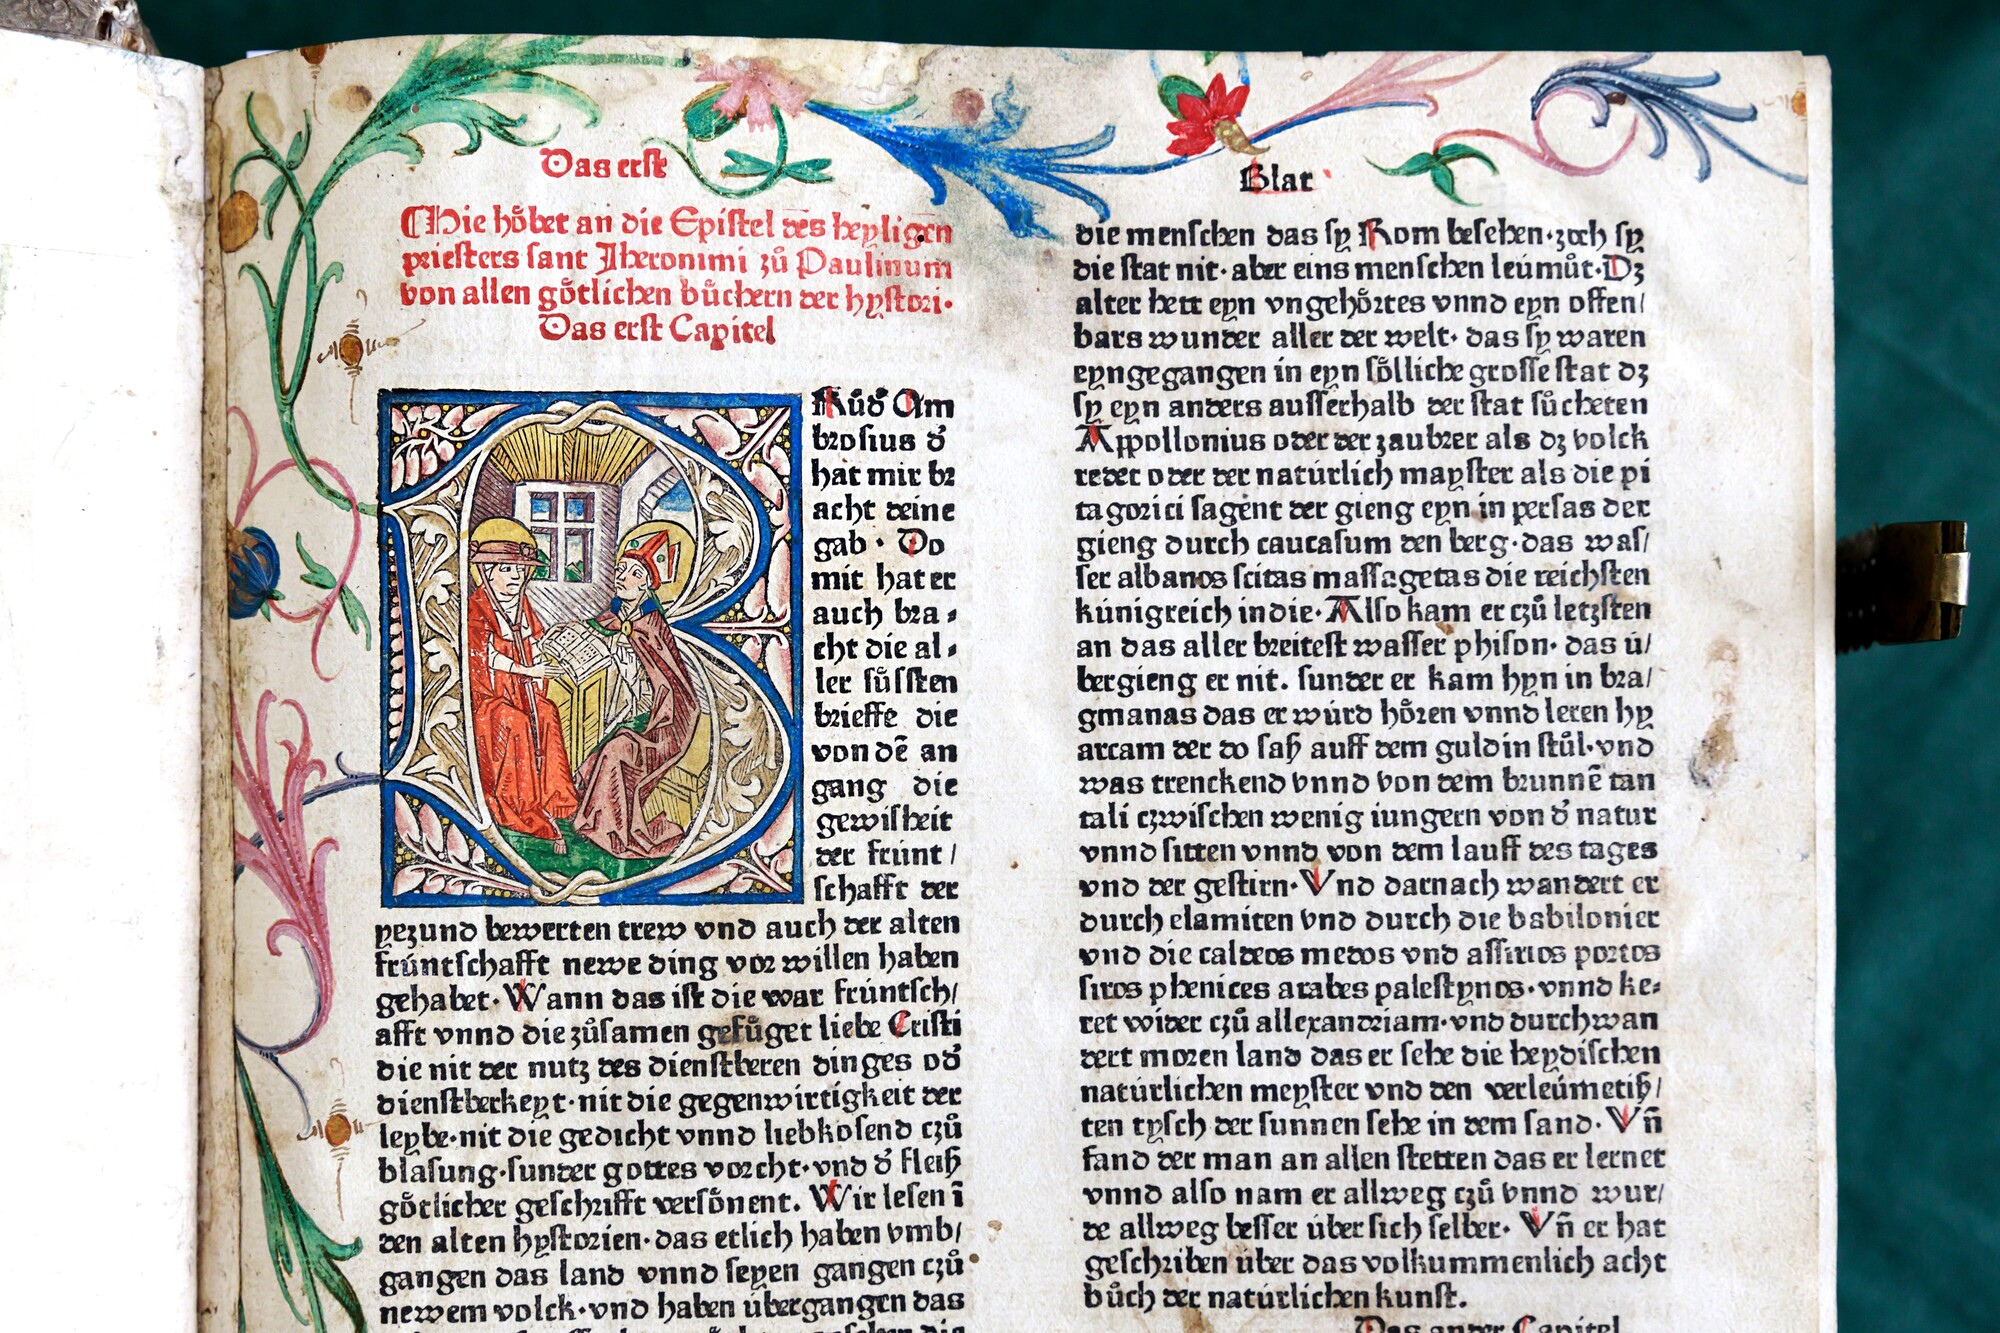 Das erst
Hie hoͤbet an die Epistel des heyligen
priesters sant Jheronimi zuͦ Paulinum
von allen goͤtlichen buͤchern der hystori·
Das erst Capitel
BRuͦdʼ Am
brosius dʼ
hat mir br
acht deine
gab · Do
mit hat er
auch bra⸗
cht die al⸗
ler suͤssten
brieffe die
von dē an
gang die
gewisheit
der frúnt /
schafft der
yezund bewerten trew vnd auch der alten
frúntschafft newe ding vor willen haben
gehabet· Wann das ist die war frúntsch/
afft vnnd die zuͦsamen gefuͤget liebe Cristi
die nit der nutz des dienstberen dinges odʼ
dienstberkeyt·nit die gegenwirtigkeit der
leybe·nit die gedicht vnnd liebkosend czuͦ
blasung·sunder gottes vorcht·vnd dʼ fleiß
goͤtlicher geschrifft versoͤnent. Wir lesen ī
den alten hystorien·das etlich haben vmb/
gangen das land vnnd seyen gangen czuͦ
newem volck·vnd haben úbergangen das
Blat
die menschen das sy Rom besehen·zoch sy
die stat nit·aber eins menschen leúmuͦt·Dz
alter hett eyn vngehoͤrtes vnnd eyn offen/
bars wunder aller der welt· das sy waren
eyngegangen in eyn soͤlliche grosse stat dz
sy eyn anders ausserhalb der stat suͦcheten
Appollonius oder der zaubrer als dz volck
redet oder der natúrlich mayster als die pi
tagorici sagent der gieng eyn in persas der
gieng durch caucasum den berg·das was/
ser albanos scitas massagetas die reichsten
kúnigreich indie· Also kam er czuͦ letzsten
an das aller breitest wasser phison· das ú/
bergieng er nit. sunder er kam hyn in bra/
gmanas das er wúrd hoͤren vnnd leren hy
arcam der do saß auff dem guldin stuͦl·vnd
was trenckend vnnd von dem brunnē tan
tali czwischen wenig iungern von dʼ natur
vnnd sitten vnnd von dem lauff des tages
vnd der gestirn· Vnd darnach wandert er
durch elamiten vnd durch die babilonier
vnd die caldeos medos vnd assirios portos
siros phenices arabes palestynos·vnnd ke⸗
ret wider czuͦ allexandriam·vnd durchwan
dert moren land das er sehe die heydischen
natúrlichen meyster vnd den verleúmetiß/
ten tysch der sunnen sehe in dem sand. Vn̄
fand der man an allen stetten das er lernet
vnnd also nam er allweg czuͦ vnnd wur/
de allweg besser úber sich selber· Vn̄ er hat
geschriben úber das volkummenlich acht
buͤch der natúrlichen kunst.
Das ander Capitel